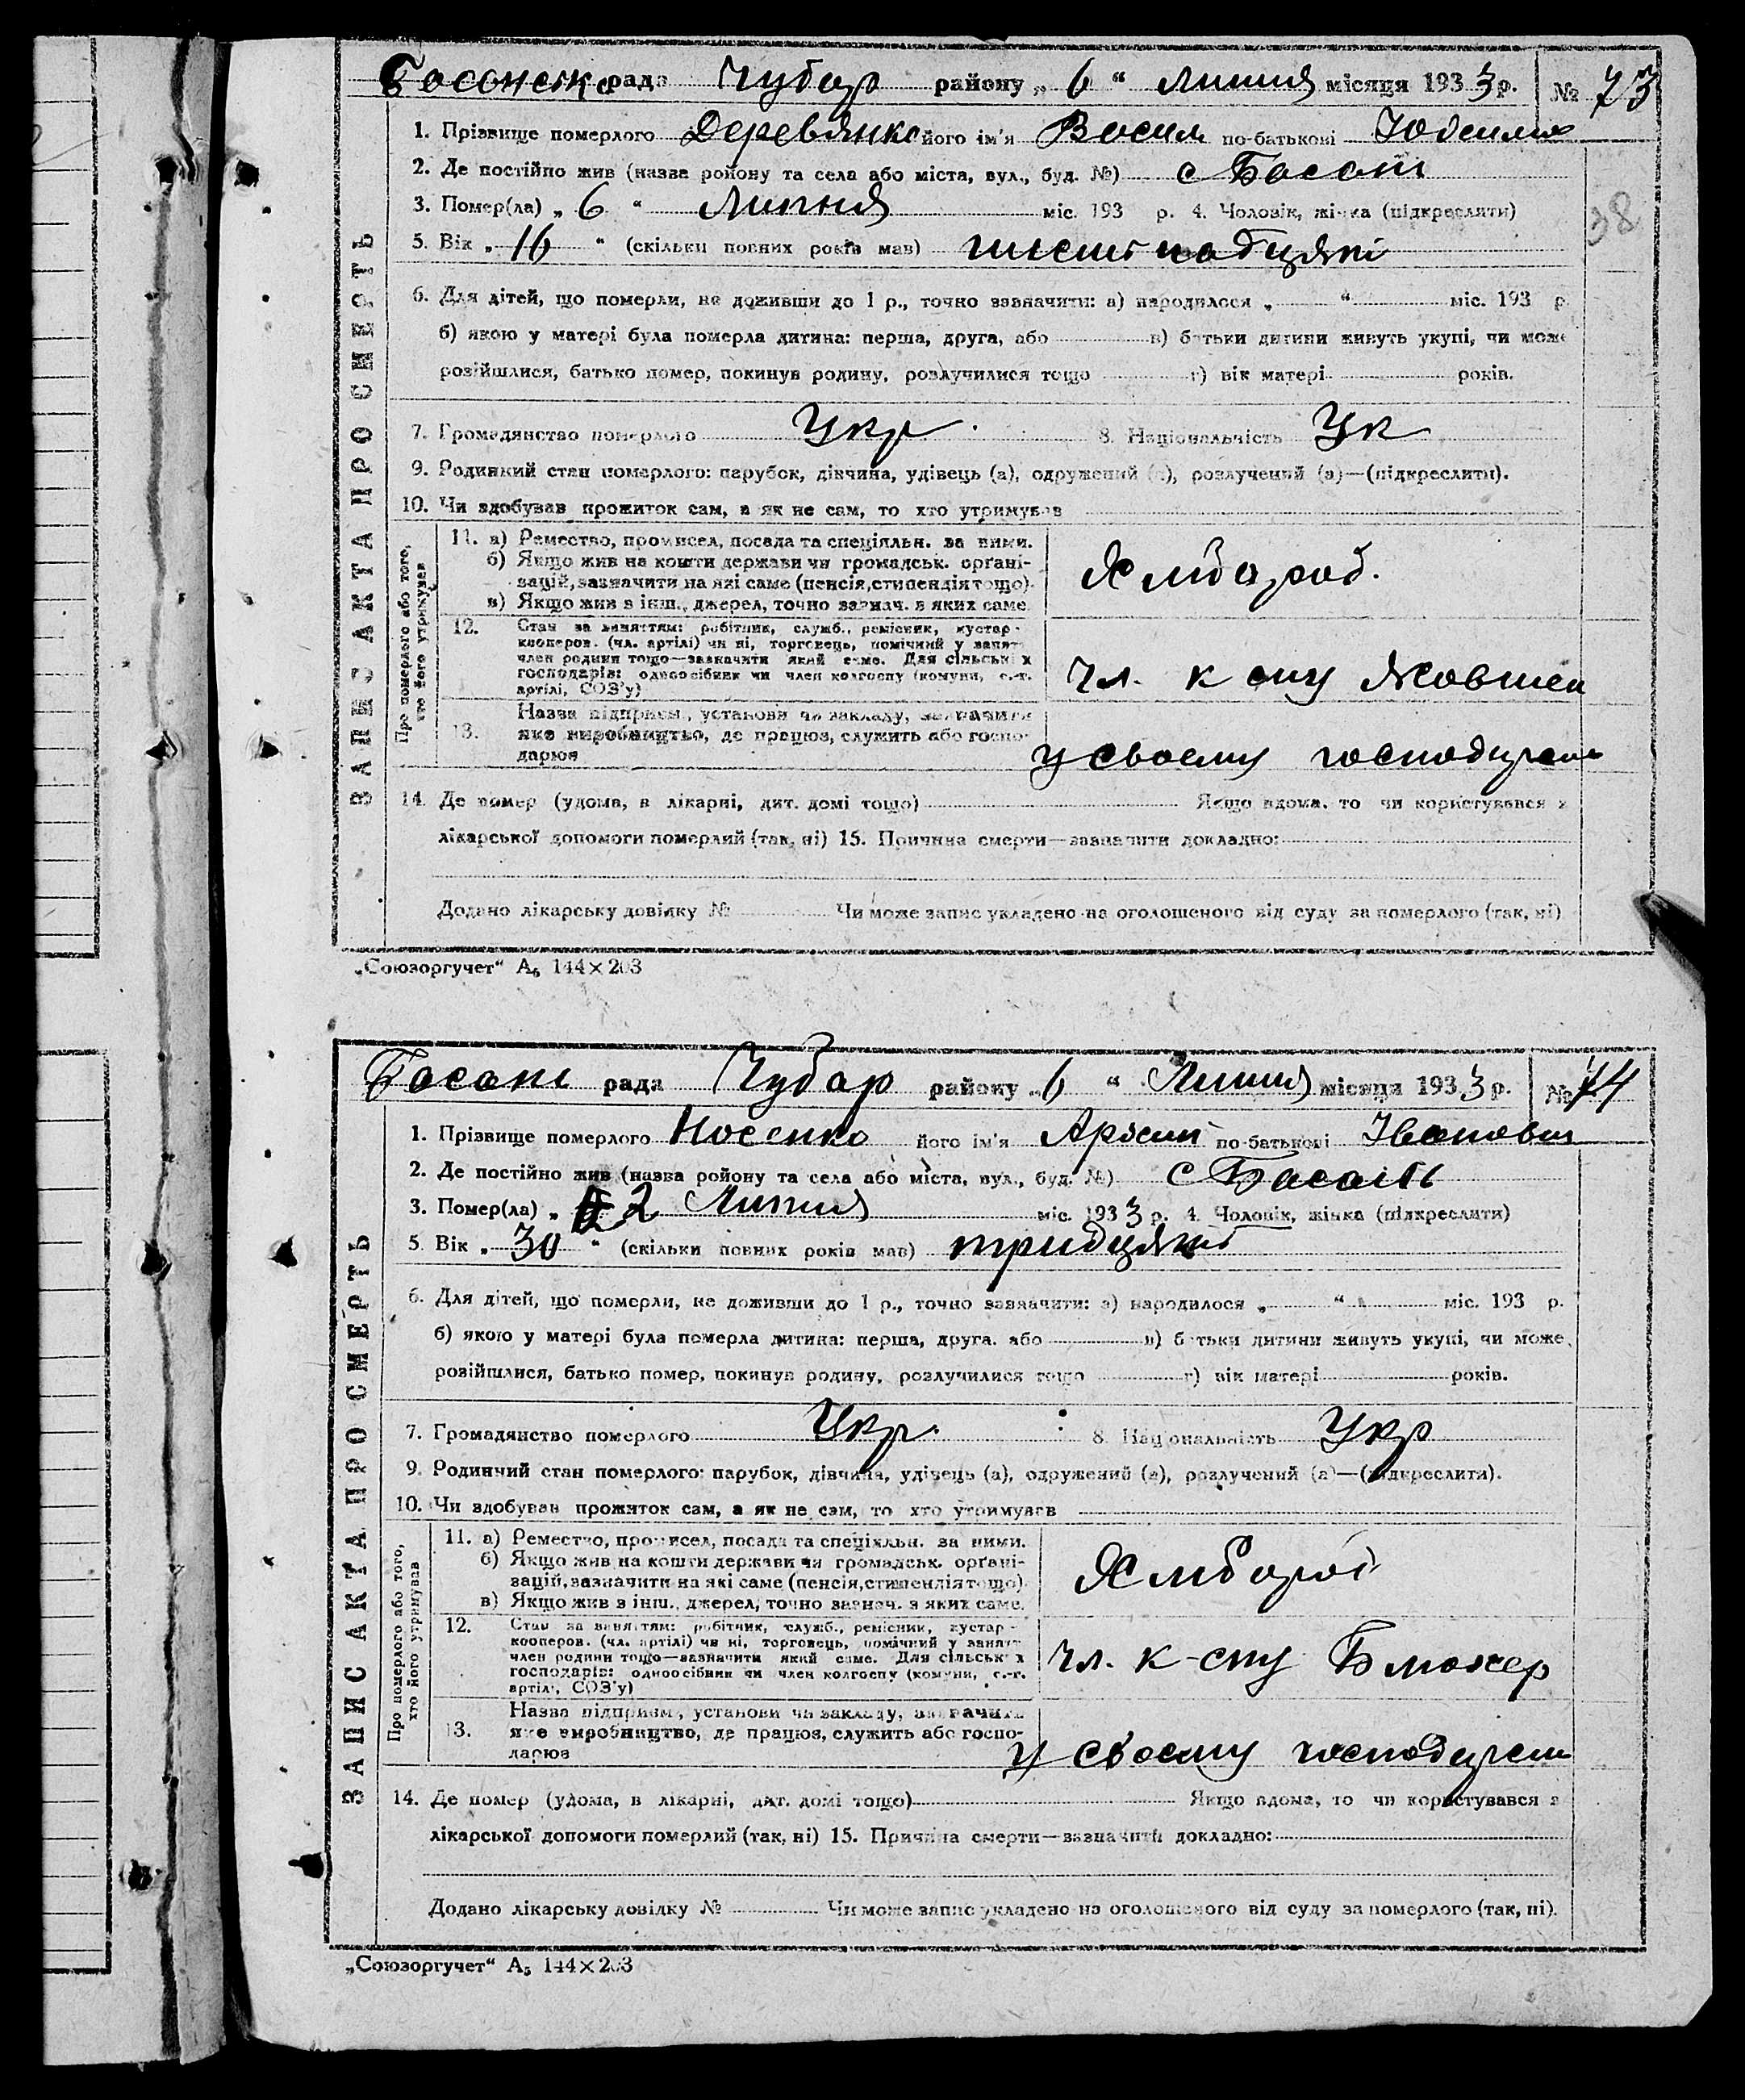 Басанська рада Чубар району „6“ Липня місяця 1933 р. № 73
38
ЗАПИС АКТА ПРО СМЕРТЬ
1. Прізвище померлого Деревянко його ім'я Василь по-батькові
2. Де постійно жив (назва ройону та села або міста, вул., буд. №) с Басань
3. Помер(ла) „6“ Липня міс. 193 р. 4. Чоловік, жінка (підкреслити)
5. Вік „16“ (скільки повних років мав) шістнадцять
6. Для дітей, що померли, не доживши до 1 р., точно зазначити: а) народилося „ “ міс. 193 р.
б) якою у матері була померла дитина: перша, друга, або в) батьки дитини живуть укупі, чи може
розійшлися, батько помер, покинув родину, розлучилися тощо г) вік матері років.
7. Громадянство померлого Укр. 8. Національність Ук
9. Родинний стан померлого: парубок, дівчина, удівець (а), одружений (а), розлучений (а)—(підкреслити).
10. Чи здобував прожиток сам, а як не сам, то хто утримував
Про померлого або того, хто його утримував
11. а) Ремество, промисел, посада та спеціяльн. за ними.
б) Якщо жив на кошти держави чи громадськ. орґані-
зацій, зазначити на які саме (пенсія, стипендія тощо).
в) Якщо жив в інш., джерел, точно зазнач. з яких саме.
Хлібороб.
12. Стан за заняттям: робітник, служб., ремісник, кустар-
кооперов. (чл. артілі) чи ні, торговець, помічний у занят-
член родини тощо—зазначити який саме. Для сільських
господарів: одноосібник чи член колгоспу (комуни, с.-г.
артілі, СОЗ'у)
Чл. к спу Жовтен
13. Назва підприєм., установи чи закладу, зазначити
яке виробництво, де працює, служить або госпо-
дарює
у своєму господарств
14. Де помер (удома, в лікарні, дит. домі тощо) Якщо вдома, то чи користувався з
лікарської допомоги померлий (так, ні) 15. Причина смерти—зазначити докладно:
Додано лікарську довідку № Чи може запис укладено на оголошеного від суду за померлого (так, ні)
„Союзоргучет“ А₅ 144×203
Басань рада Чубар району „6“ Липня місяця 1933 р. № 74
ЗАПИС АКТА ПРО СМЕРТЬ
1. Прізвище померлого Носенко його ім'я Арсени по-батькові Іванович
2. Де постійно жив (назва ройону та села або міста, вул., буд. №) с Басань
3. Помер(ла) „ 2 Липня міс. 1933 р. 4. Чоловік, жінка (підкреслити)
5. Вік „30“ (скільки повних років мав) тридцять
6. Для дітей, що померли, не доживши до 1 р., точно зазначити: а) народилося „ “ міс. 193 р.
б) якою у матері була померла дитина: перша, друга, або в) батьки дитини живуть укупі, чи може
розійшлися, батько помер, покинув родину, розлучилися тощо г) вік матері років.
7. Громадянство померлого Укр. 8. Національність Укр
9. Родинний стан померлого: парубок, дівчина, удівець (а), одружений (а), розлучений (а)—(підкреслити).
10. Чи здобував прожиток сам, а як не сам, то хто утримував
Про померлого або того, хто його утримував
11. а) Ремество, промисел, посада та спеціяльн. за ними.
б) Якщо жив на кошти держави чи громадськ. орґані-
зацій, зазначити на які саме (пенсія, стипендія тощо).
в) Якщо жив в інш., джерел, точно зазнач. з яких саме.
Хлібороб
12. Стан за заняттям: робітник, служб., ремісник, кустар-
кооперов. (чл. артілі) чи ні, торговець, помічний у занят-
член родини тощо—зазначити який саме. Для сільських
господарів: одноосібник чи член колгоспу (комуни, с.-г.
артілі, СОЗ'у)
Чл. к-спу Блюхер
13. Назва підприєм., установи чи закладу, зазначить
яке виробництво, де працює, служить або госпо-
дарює
у своєму господарств
14. Де помер (удома, в лікарні, дит. домі тощо) Якщо вдома, то чи користувався з
лікарської допомоги померлий (так, ні) 15. Причина смерти—зазначити докладно:
Додано лікарську довідку № Чи може запис укладено на оголошеного від суду за померлого (так, ні).
„Союзоргучет“ А₅ 144×203